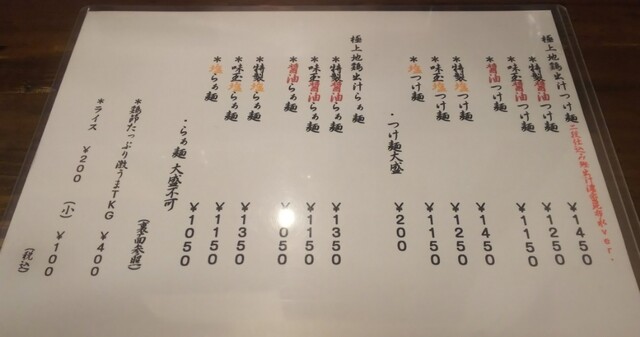 極上地鶏出汁つけ麺
＊特製醤油つけ麺 ￥１４５０
＊味玉醤油つけ麺 ￥１２５０
＊醤油つけ麺 ￥１１５０
＊特製塩つけ麺 ￥１４５０
＊味玉塩つけ麺 ￥１２５０
＊塩つけ麺 ￥１１５０
・つけ麺大盛 ￥２００
極上地鶏出汁らぁ麺
＊特製醤油らぁ麺 ￥１３５０
＊味玉醤油らぁ麺 ￥１１５０
＊醤油らぁ麺 ０５０
＊特製塩らぁ麺 ￥１３５０
＊味玉塩らぁ麺 ￥１１５０
＊塩らぁ麺 ￥１０５０
・らぁ麺 大盛不可
＊鶏節たっぷり激うまＴＫＧ ￥４００
（裏面参照）
＊ライス ￥２００ （小）￥１００
（税込）